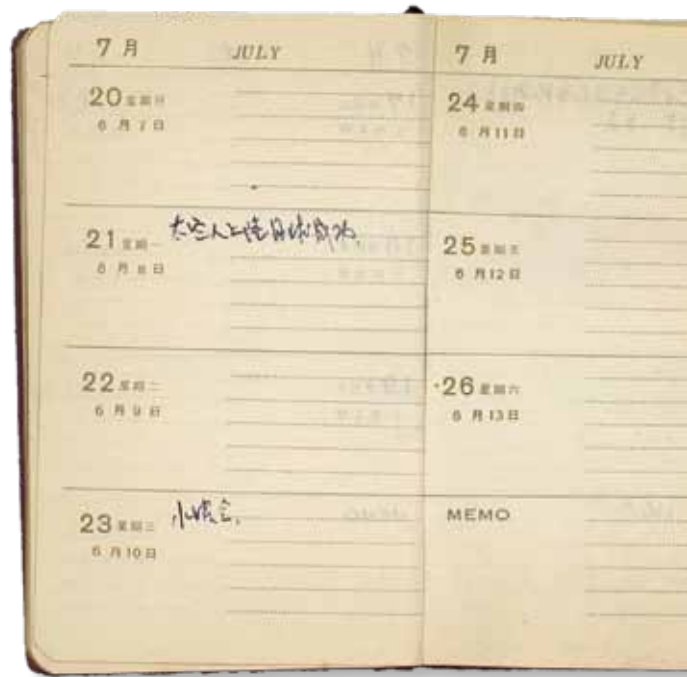 7月 JULY
20 星期日
6月7日
21 星期一
太空人上陸月球成功.
6月8日
22 星期二
6月9日
23 星期三
6月10日
7月 JULY
24 星期四
6月11日
25 星期五
6月12日
26 星期六
6月13日
MEMO